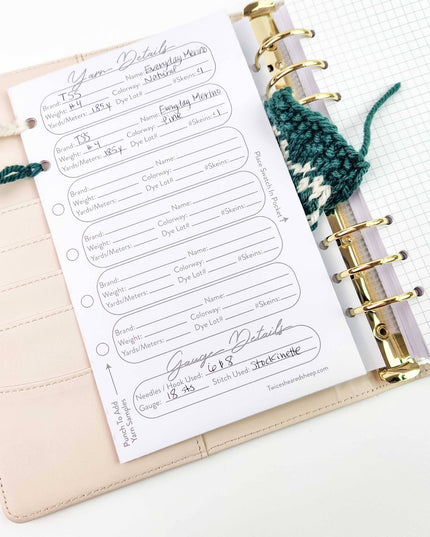 Yarn Details
Brand: TSS Name: Everyday Merino
Weight: #4 Colorway: Natural
Yards/Meters: 185y Dye Lot# #Skeins: 1
Brand: TSS Name: Everyday Merino
Weight: #4 Colorway: Pine
Yards/Meters: 185y Dye Lot# #Skeins: 1
Brand: Name:
Weight: Colorway:
Yards/Meters: Dye Lot# #Skeins:
Brand: Name:
Weight: Colorway:
Yards/Meters: Dye Lot# #Skeins:
Brand: Name:
Weight: Colorway:
Yards/Meters: Dye Lot# #Skeins:
Brand: Name:
Weight: Colorway:
Yards/Meters: Dye Lot# #Skeins:
Gauge Details
Needles / Hook Used: 6 & 8
Gauge: 18 sts Stitch Used: Stockinette
Twiceshearedsheep.com
Place Swatch In Pocket
Punch To Add
Yarn Samples